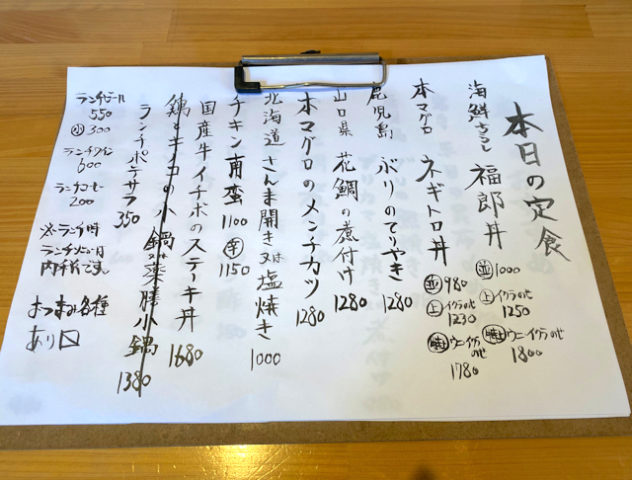 本日の定食
海鮮ちらし 福郎丼
並 1000
上 イクラのせ 1250
特上 ウニ・イクラのせ 1800
本マグロ ネギトロ丼
並 980
上 イクラのせ 1230
特上 ウニ・イクラのせ 1780
鹿児島 ぶりのてりやき 1280
山口県 花鯛の煮付け 1280
本マグロのメンチカツ 1280
北海道 さんま開き又は塩焼き 1000
チキン南蛮 1100
辛 1150
国産牛イチボのステーキ丼 1680
鶏とキノコの小鍋
小鍋 1380
ランチポテサラ 350
ランチビール
550
小 300
ランチワイン
600
ランチコーヒー
200
※ランチ時
おつまみ各種
あり〼